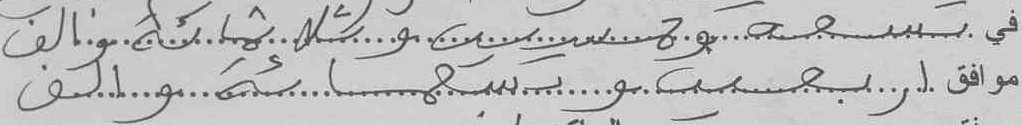 في تسعة وخمسين وثلاثمائة والف
موافق اربعين وتسعمائة والف